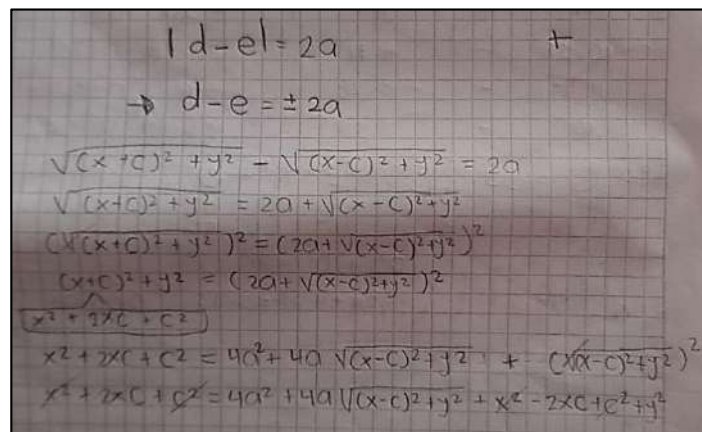 |d-e| = 2a +
→ d-e = ± 2a
√(x+c)² + y² - √(x-c)² + y² = 2a
√(x+c)² + y² = 2a + √(x-c)² + y²
(√(x+c)² + y²)² = (2a + √(x-c)² + y²)²
(x+c)² + y² = (2a + √(x-c)² + y²)²
x² + 2xc + c²
x² + 2xc + c² = 4a² + 4a √(x-c)² + y² + (√(x-c)² + y²)²
x² + 2xc + c² = 4a² + 4a √(x-c)² + y² + x² - 2xc + c² + y²